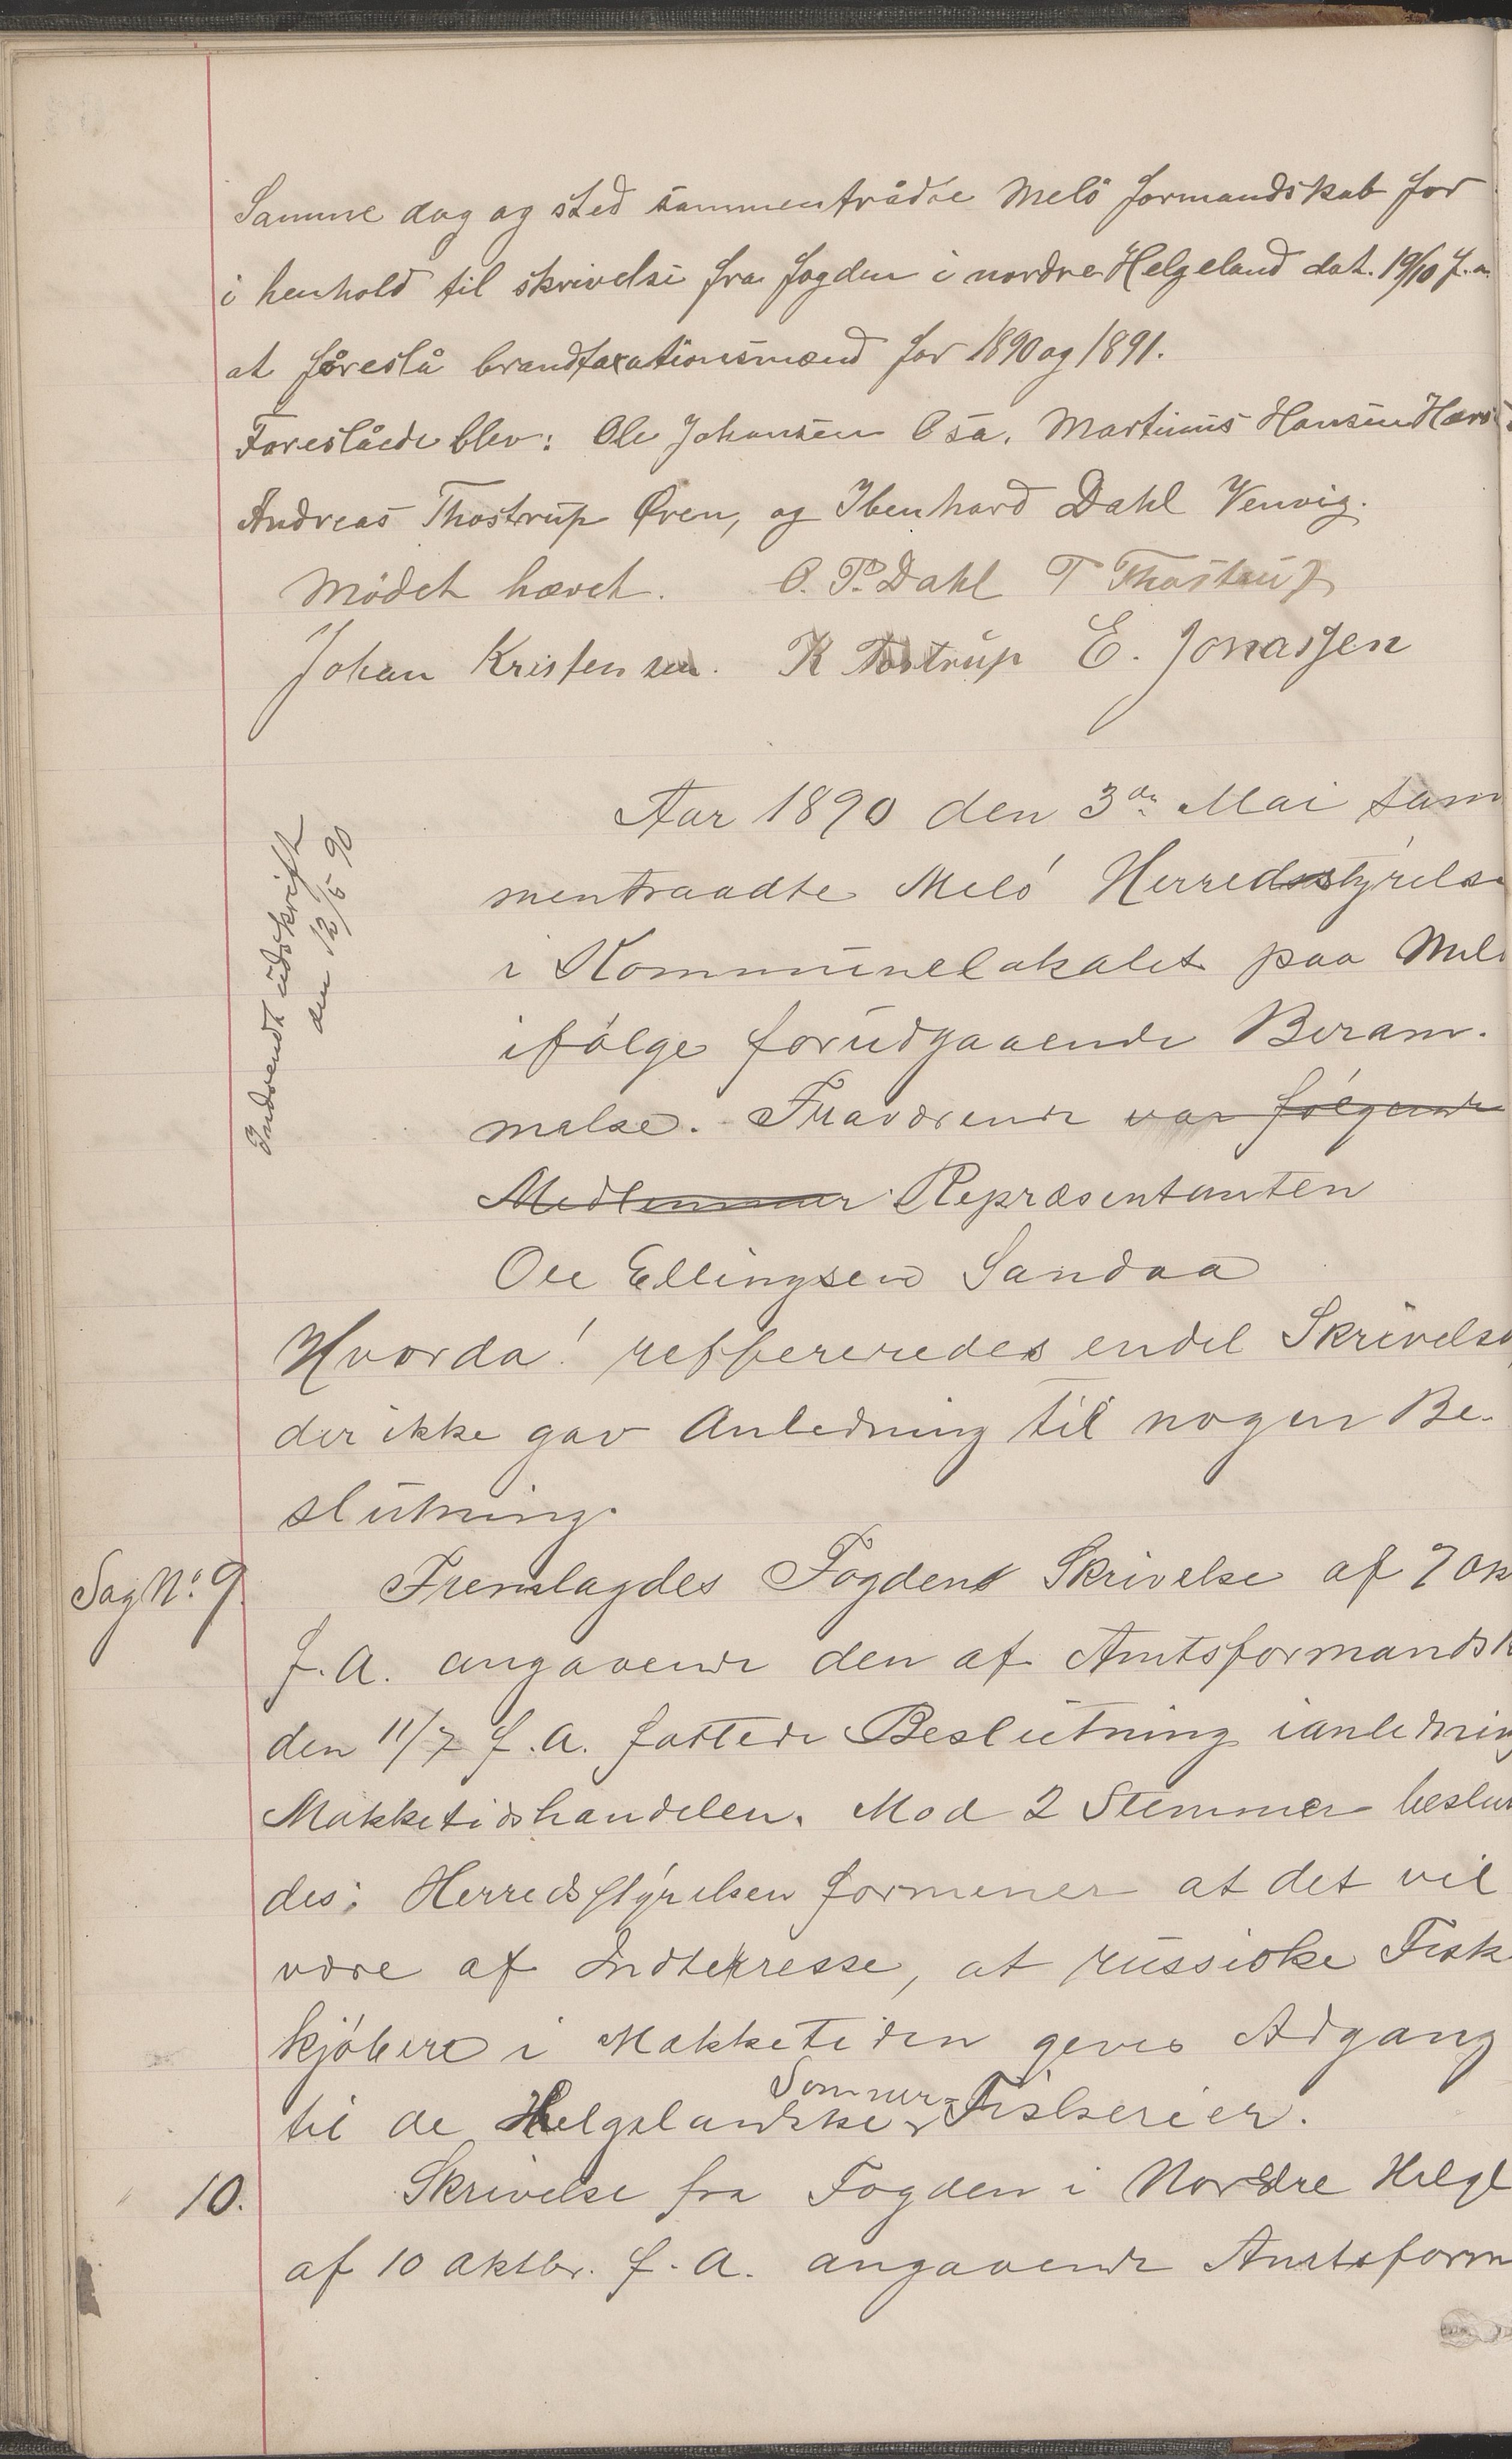 Samme dag og sted sammentrådte Melö formandskab for
i henhold til skrivelse fra fogden i nordre Helgeland dat. 19/10 f.a.
at föreslå brandtaxationsmænd for 1890 og 1891.
Foreslåede blev: Ole Johansen Osa, Martinus Hansen
Andreas Thostrup Øren, og Ibenhard Dahl Venvig.
Mödet hævet. O. P. Dahl T Thostrup
Johan Kristensen. K Tostrup E. Jonassen
Indsendt udskrift
den 12/5 90
Aar 1890 den 3die Mai sam
mentraadte Melö Herredsstyrelse
i Kommunelokalet paa Melö
ifölge forudgaaende Beram-
melse. Fraværende var fölgende
Medlemmer Repræsentanten
Ole Ellingsen Sandaa
Hvorda! reffereredes endel Skrivelse
der ikke gav Anledning til nogen Be-
slutning.
Sag No. 9 Fremlagdes Fogdens Skrivelse af 7 Ok
f. A. angaaende den af Amtsformandsk
den 11/7 f. A. fattede Beslutning ianledning
Makketidshandelen. Mod 2 Stemmer beslut
des: Herredsstyrelsen formener at det vil
være af Indterresse, at russiske Fisk
kjöbere i Makketiden geves Adgang
til de Helgelandske Sommer-Fiskerier.
" 10. Skrivelse fra Fogden i Nordre Helgl
af 10 oktbr. f. A. angaaende Amtsform